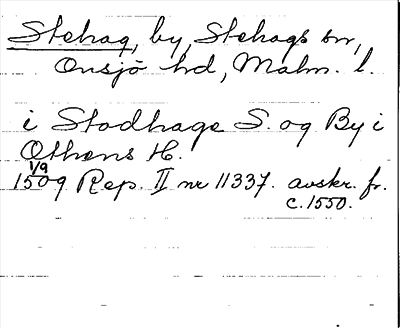 Stehag, by, Stehags sn,
Onsjö hd, Malm. l.
i Stodhage S. og By i
Othens H.
1/9
1509 Rep. II nr 11337. avskr. fr.
c. 1550.